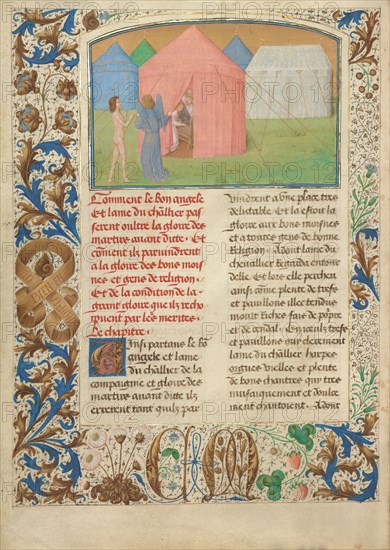 Comment le bon angele
Et lame du chllier pas
serent oultre la gloire des
martirs auant ditte. Et
comēt ilz paruindrent
a la gloire des bons moi
nes et gens de religion.
Et de la condition de la
ioire que ilz recho
ipuent par les merites.
le chapitre.
Insi partans le bō
angele et lame
du chlliet de la
compaignie et gloire des
martirs auant ditte ilz
errerent tant quilz par
uindrent a vne place tres
delitable. Et la estoit la
gloire aux bons moisnes
et a toutes gens de bonne
religion. Adont lame du
cheuallier regarda entour
delle. Et lors elle percheu
ainsi cōme plente de trefs
et pauillons illec tendus
moult riches fais de popre
et de cendal. En iceulx trefs
et pauillons ouy clerement
lame du chllier harpes
orgues vielles et plente
de bons chantres qui tres
musicaument et doulce
ment chantoient. Adont
PHOTO12